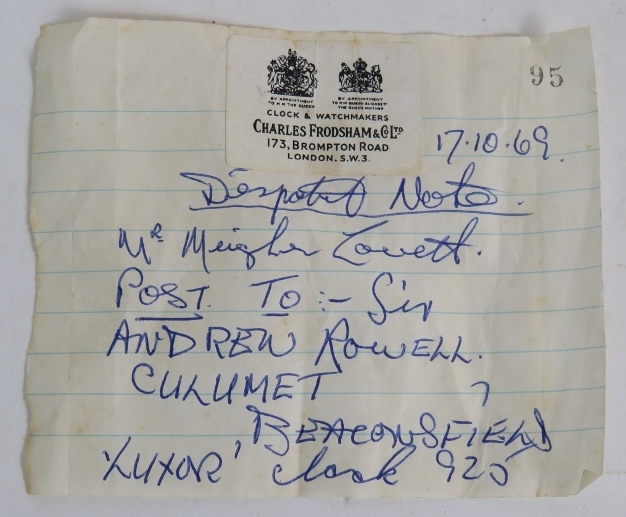 95
BY APPOINTMENT TO H M THE QUEEN
BY APPOINTMENT TO H M QUEEN ELIZABETH THE QUEEN MOTHER
CLOCK & WATCHMAKERS
CHARLES FRODSHAM & CO LTD
173, BROMPTON ROAD
LONDON. S.W.3.
17.10.69.
Despatch Note.
Mr Lovett.
POST TO :- Sir
ANDREW ROWELL.
CULUMET
BEACONSFIELD
'LUXOR' clock 925